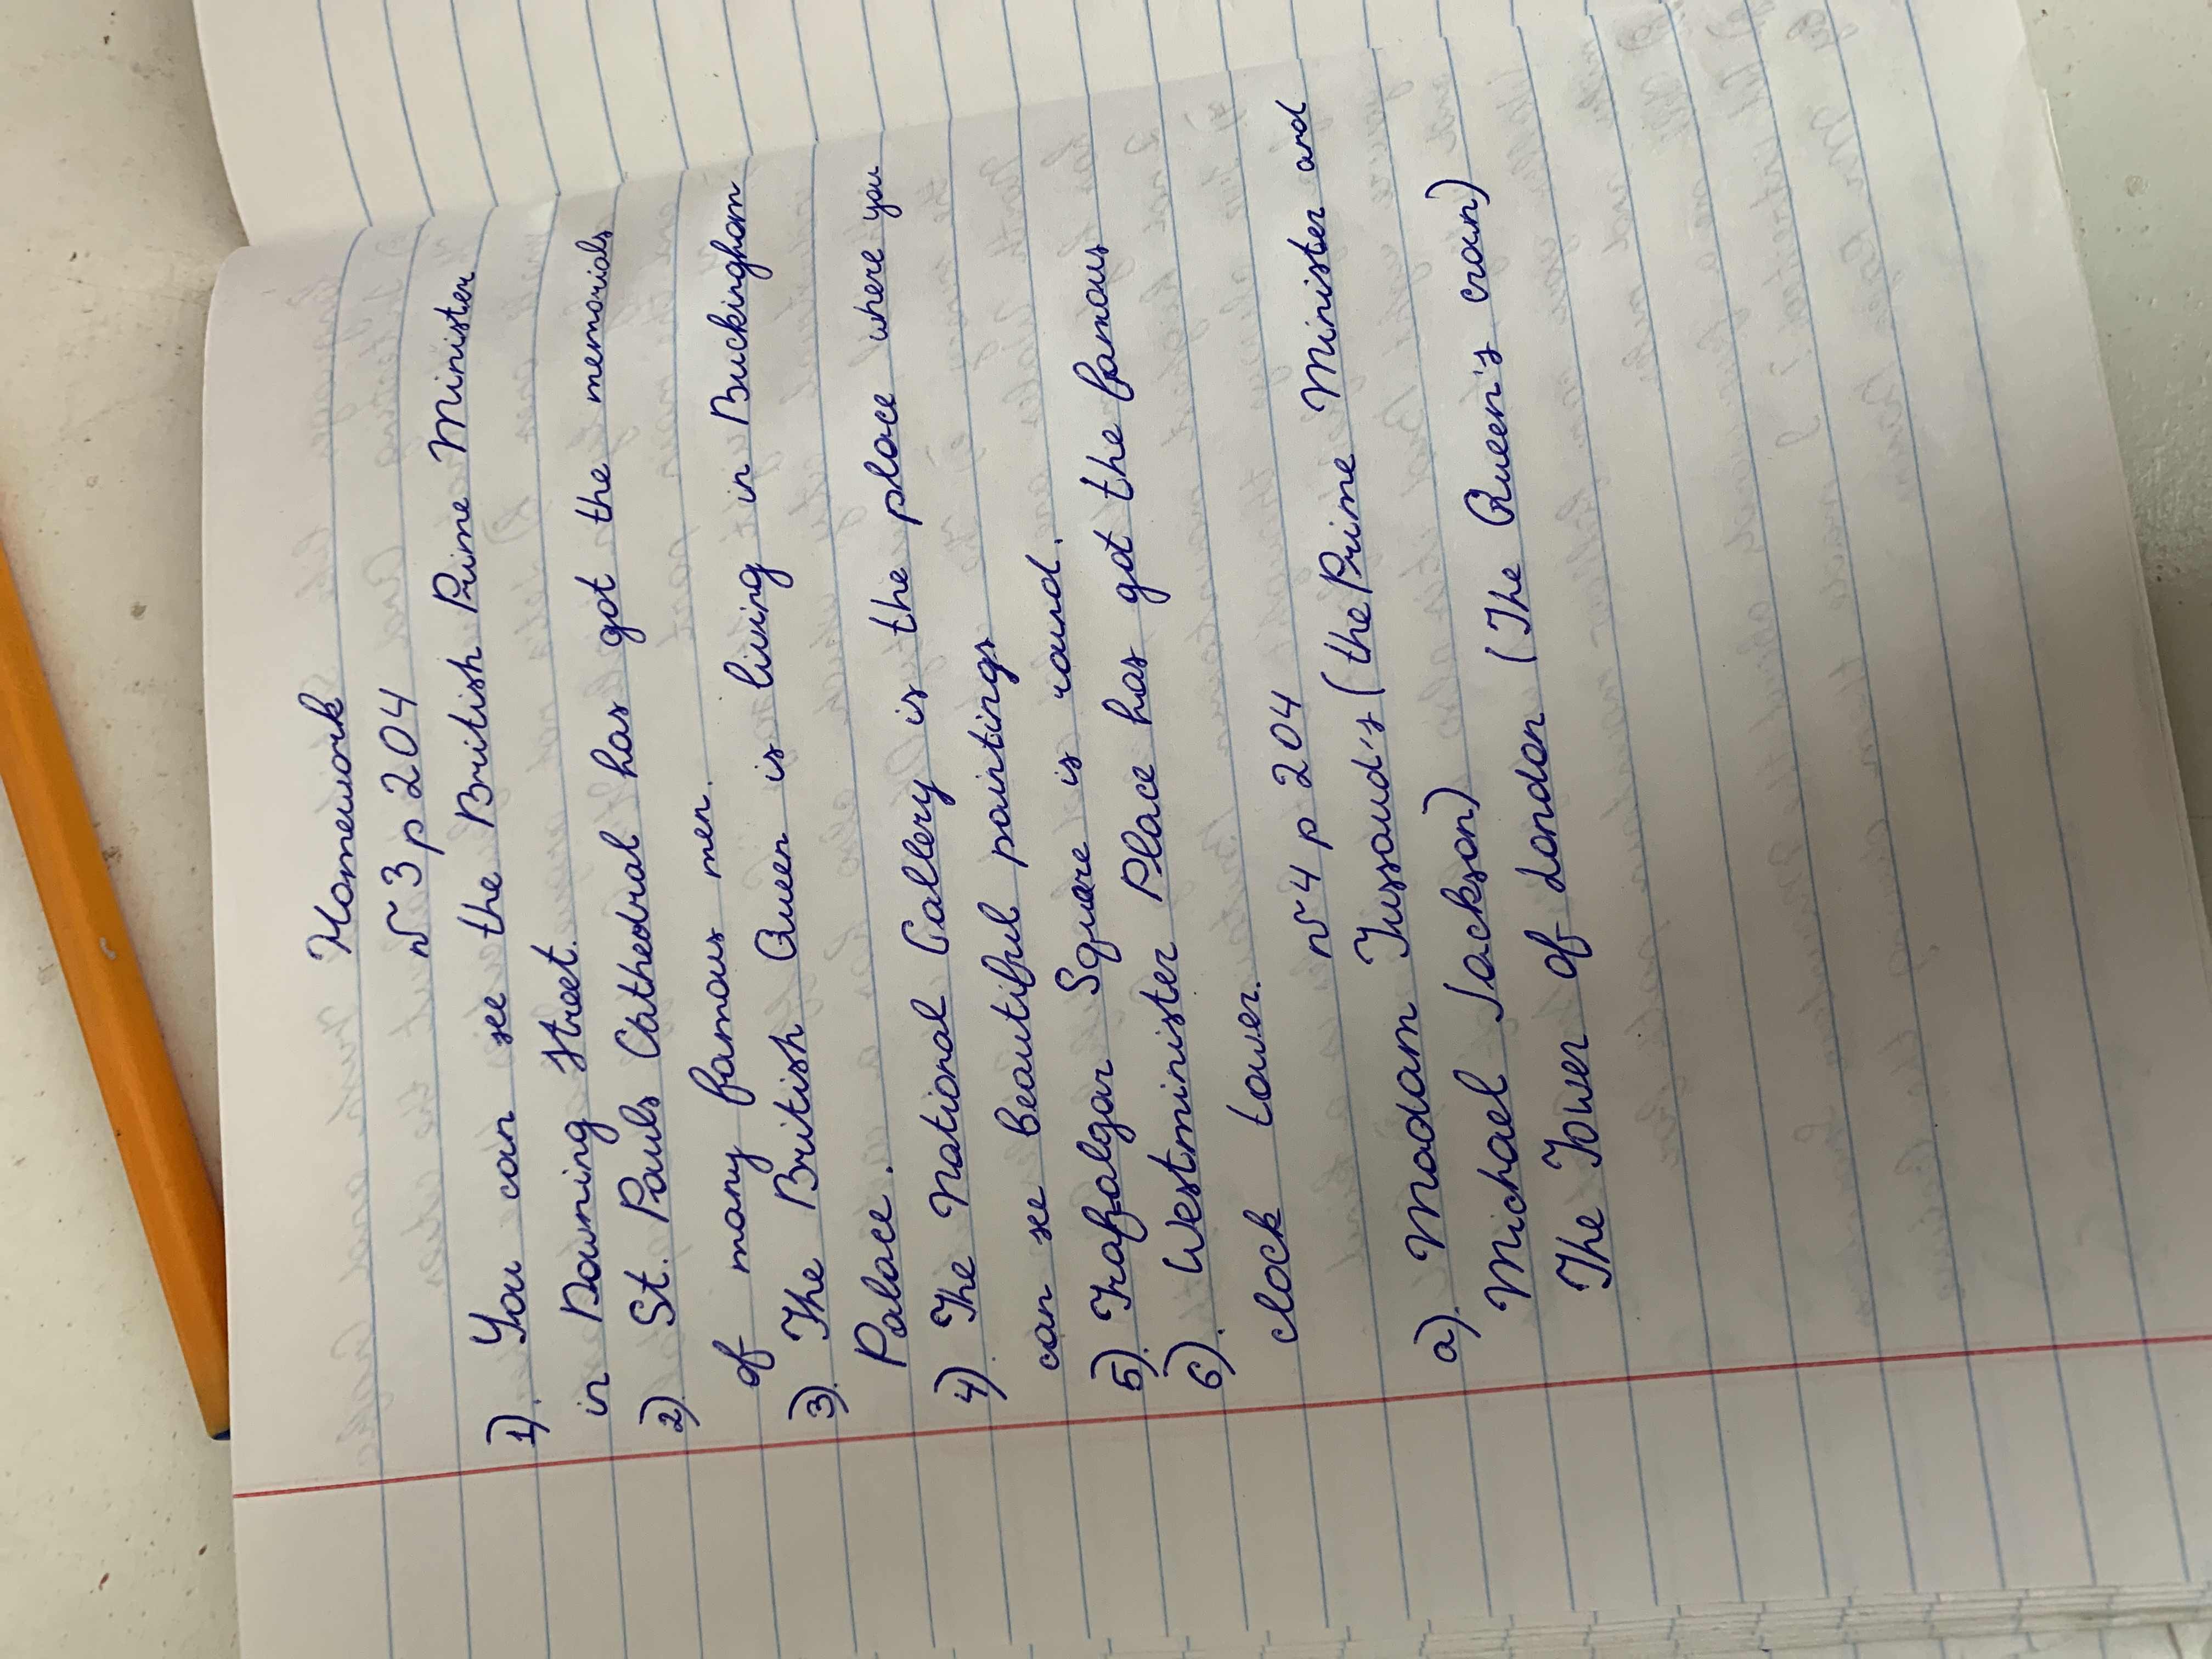 Homework
№ 3 p 204
1). You can see the British Prime Minister
in Downing street.
2). St. Pauls Cathedral has got the memorials
of many famous men.
3). The British Queen is living in Buckingham
Palace.
4). The National Gallery is the place where you
can see beautiful paintings
5). Trafalgar Square is round.
6). Westminister Place has got the famous
clock tower.
№ 4 p 204
a). Madam Tussaud's (the Prime Minister and
Michael Jackson)
The Tower of London (The Queen's croun)